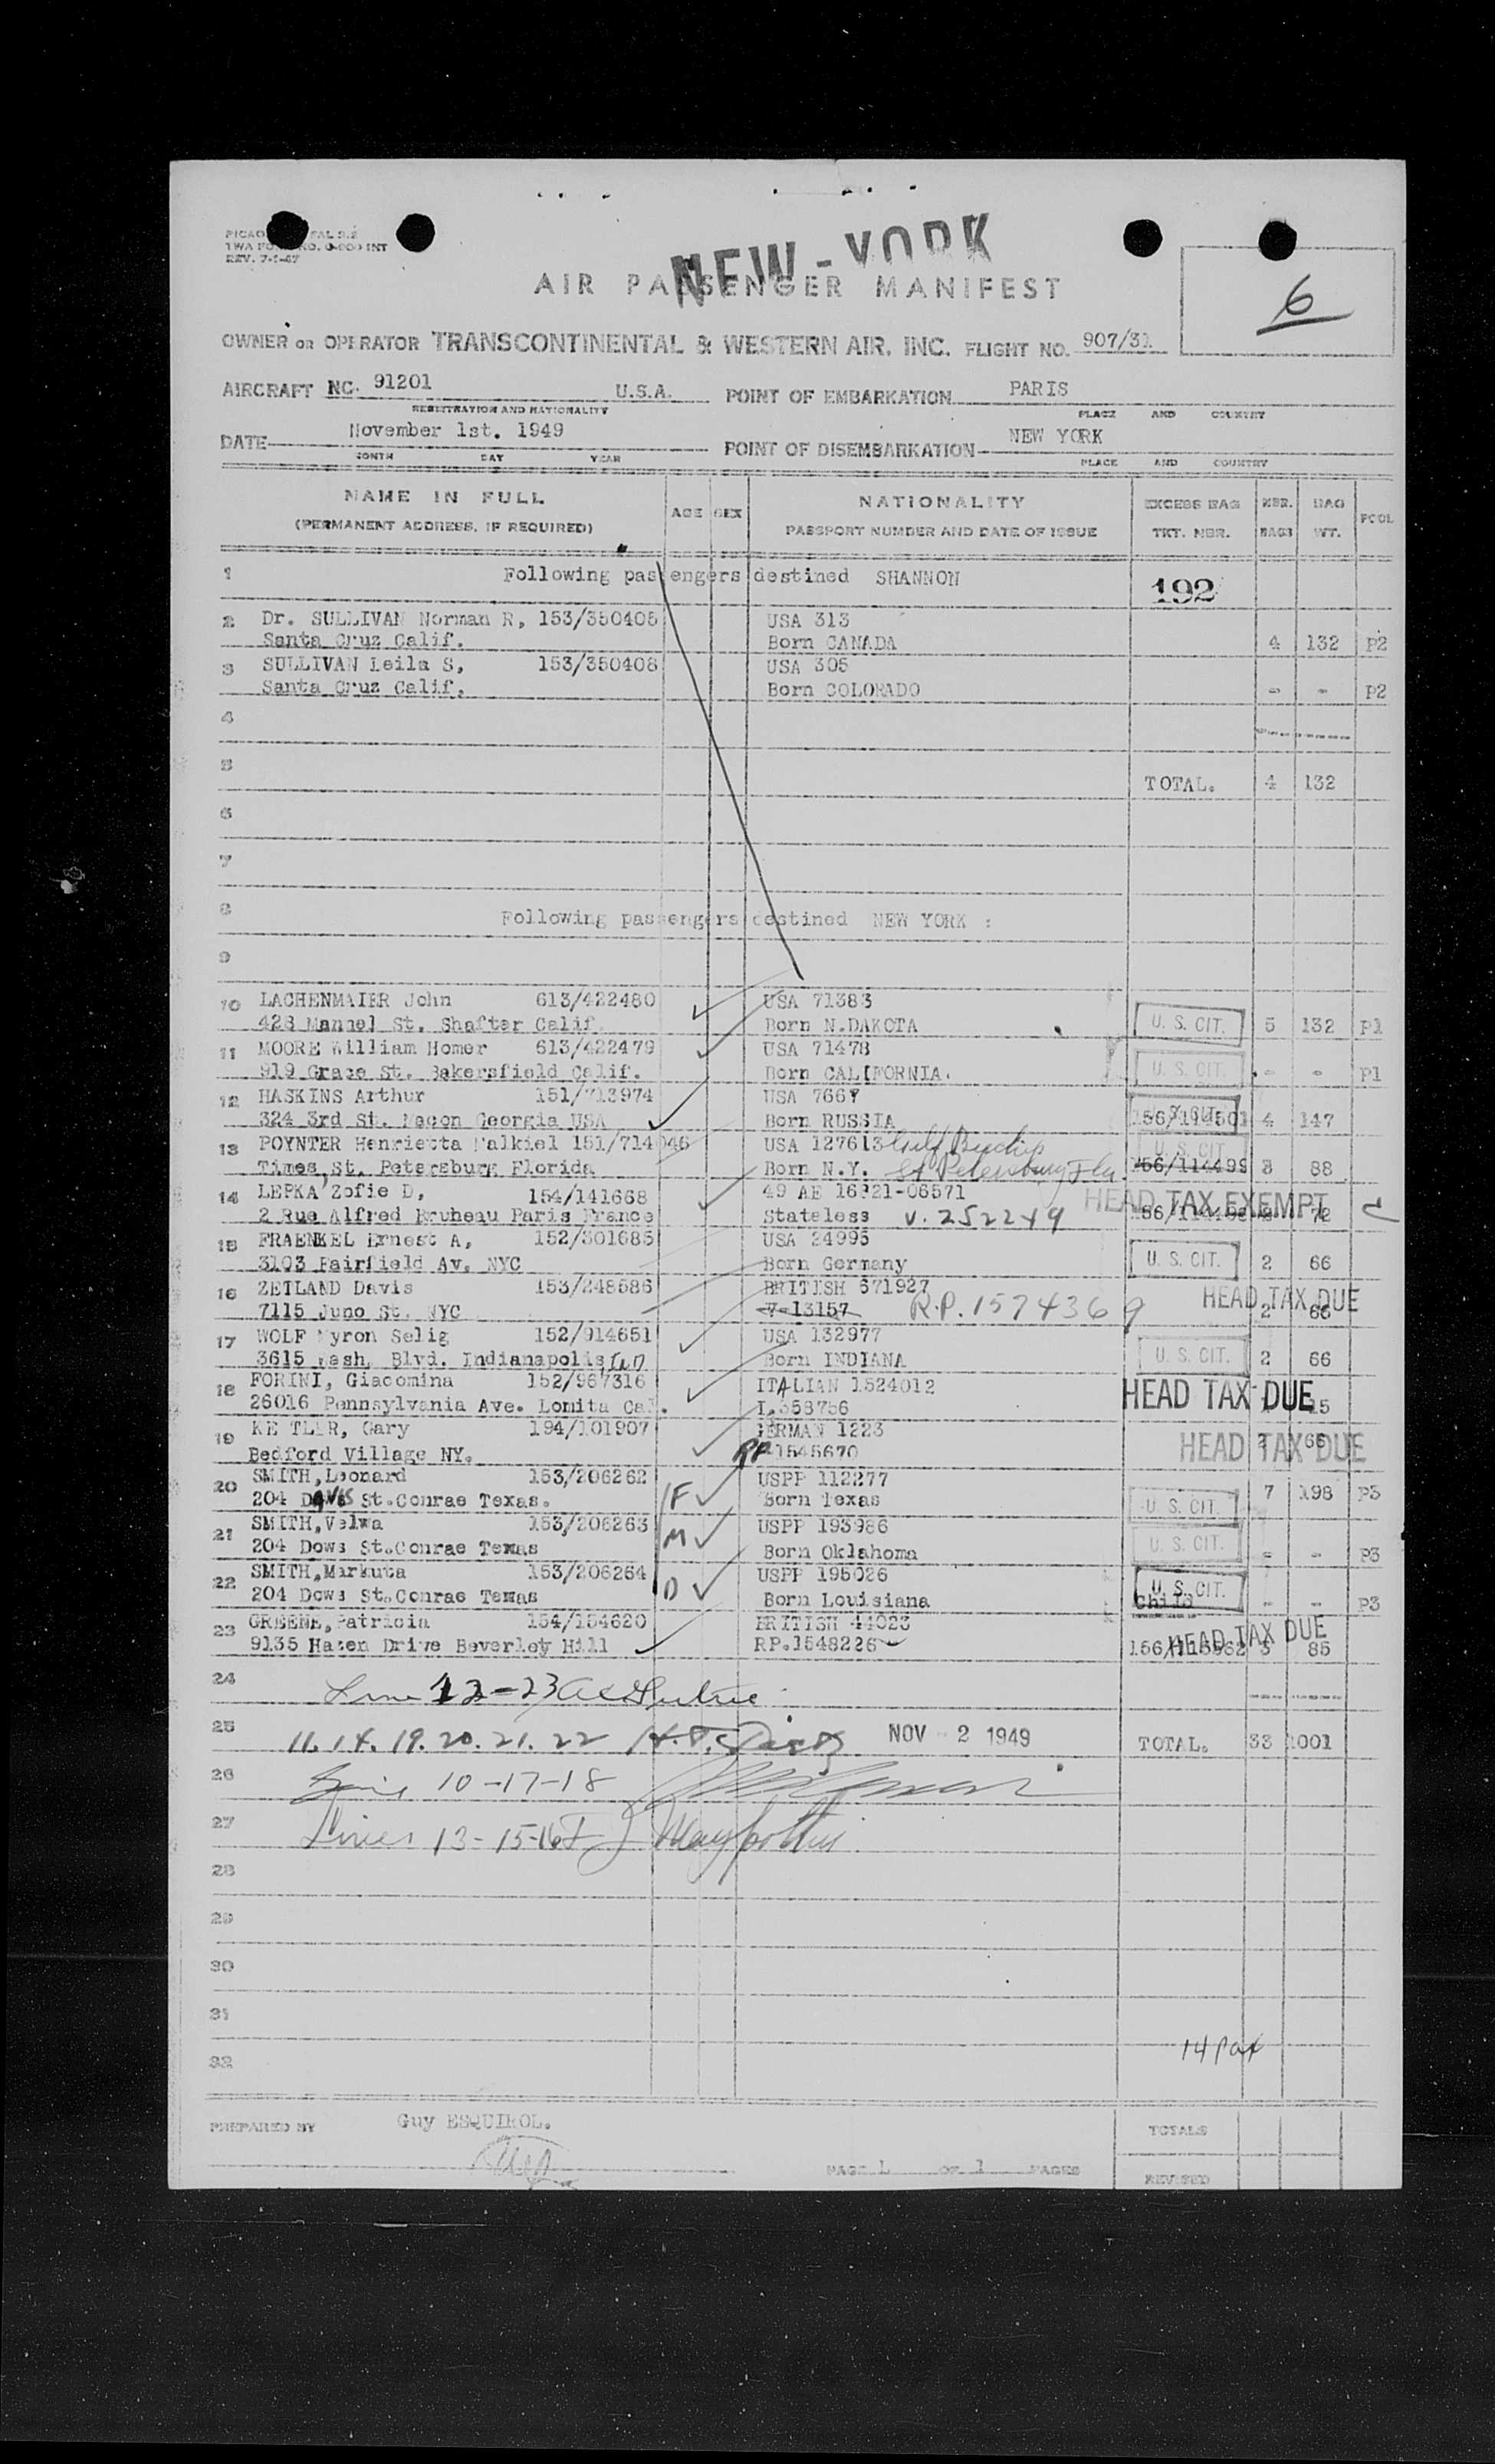 TWA
REV. 7-1-47
NEW-YORK
AIR PASSENGER MANIFEST
6
OWNER OR OPERATOR TRANSCONTINENTAL & WESTERN AIR, INC. FLIGHT NO. 907/31
AIRCRAFT NC. 91201 U.S.A. POINT OF EMBARKATION PARIS
REGISTRATION AND NATIONALITY PLACE AND COUNTRY
DATE November 1st. 1949 POINT OF DISEMBARKATION NEW YORK
MONTH DAY YEAR PLACE AND COUNTRY
NAME IN FULL AGE SEX NATIONALITY EXCESS BAG NBR. BAG POOL
(PERMANENT ADDRESS, IF REQUIRED) PASSPORT NUMBER AND DATE OF ISSUE TKT. NBR. BAGS WT.
1 Following passengers destined SHANNON 192
2 Dr. SULLIVAN Norman R, 153/350405 USA 313
Santa Cruz Calif. Born CANADA 4 132 P2
3 SULLIVAN Leila S, 153/350408 USA 305
Santa Cruz Calif. Born COLORADO - - P2
4
5 TOTAL. 4 132
6
7
8 Following passengers destined NEW YORK :
9
10 LACHENMAIER John 613/422480 USA 71383
428 Mannel St. Shafter Calif. Born N.DAKOTA U. S. CIT. 5 132 P1
11 MOORE William Homer 613/422479 USA 71478
919 Grace St. Bakersfield Calif. Born CALIFORNIA. U. S. CIT. - - P1
12 HASKINS Arthur 151/713974 USA 7667
324 3rd St. Macon Georgia USA Born RUSSIA 156/114501 U. S. CIT. 4 147
13 POYNTER Henrietta Malkiel 151/714046 USA 127613 Gulf
Times, St. Petersburg Florida Born N.Y. St Petersburg Fla. 156/114499 U. S. CIT. 3 88
14 LEPKA Zofie D, 154/141668 49 AE 16321-06571 HEAD TAX EXEMPT
2 Rue Alfred Bruneau Paris France Stateless V. 252249 72
15 FRAENKEL Ernest A, 152/301685 USA 24995
3103 Fairfield Av. NYC Born Germany U. S. CIT. 2 66
16 ZETLAND Davis 153/248586 BRITISH 671927 HEAD TAX DUE
7115 Juno St. NYC 7-13157 R.P. 1574369 2 66
17 WOLF Myron Selig 152/914651 USA 132977
3615 Wash. Blvd. Indianapolis IND Born INDIANA U. S. CIT. 2 66
18 FORINI, Giacomina 152/967316 ITALIAN 1524012 HEAD TAX DUE
26016 Pennsylvania Ave. Lomita Cal. I.358756 15
19 KETTLER, Gary 194/101907 GERMAN 1223 HEAD TAX DUE
Bedford Village NY. RP 1545670 66
20 SMITH, Leonard 153/206262 F USPP 112277
204 DAVIS St.Conrae Texas. Born Texas U. S. CIT. 7 198 P3
21 SMITH, Velma 153/206263 M USPP 193986
204 Dows St.Conrae Texas Born Oklahoma U. S. CIT. - - P3
22 SMITH, Markuta 153/206264 D USPP 195026
204 Dows St.Conrae Texas Born Louisiana Child U. S. CIT. - - P3
23 GREENE, Patricia 154/154620 BRITISH 44023 HEAD TAX DUE
9135 Hazen Drive Beverley Hill RP.1548226 3 85
24 Line 12-23
25 11. 14. 19. 20. 21. 22 NOV - 2 1949 TOTAL. 33 1001
26 Line 10-17-18
27 Lines 13-15-16
28
29
30
31
14 Pax
32
PREPARED BY Guy ESQUIROL. TOTALS
PAGE 1 OF 1 PAGES REVISED